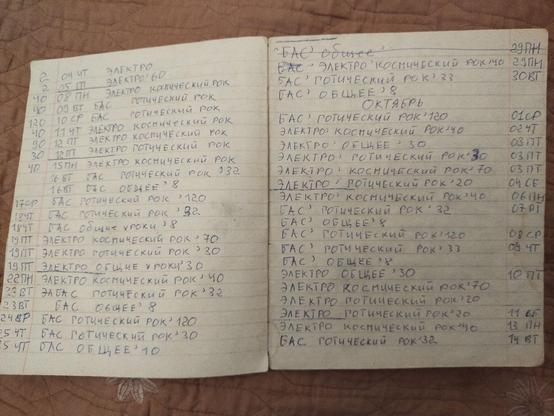 04 ЧТ ЭЛЕКТРО
2 05 ПТ ЭЛЕКТРО' 60
40 08 ПН ЭЛЕКТРО КОСМИЧЕСКИЙ РОК
90 09 ВТ БАС ГОТИЧЕСКИЙ РОК
120 10 СР БАС ГОТИЧЕСКИЙ РОК
40 11 ЧТ ЭЛЕКТРО КОСМИЧЕСКИЙ РОК
90 12 ПТ ЭЛЕКТРО КОСМИЧЕСКИЙ РОК
30 12 ПТ ЭЛЕКТРО ГОТИЧЕСКИЙ РОК
40 15 ПН ЭЛЕКТРО КОСМИЧЕСКИЙ РОК
16 ВТ БАС ГОТИЧЕСКИЙ РОК' 32
16 ВТ БАС ОБЩЕЕ' 8
17 СР БАС ГОТИЧЕСКИЙ РОК' 120
18 ЧТ БАС ГОТИЧЕСКИЙ РОК' 32
18 ЧТ БАС ОБЩИЕ УРОКИ' 8
19 ПТ ЭЛЕКТРО КОСМИЧЕСКИЙ РОК' 70
19 ПТ ЭЛЕКТРО ГОТИЧЕСКИЙ РОК' 30
19 ПТ ЭЛЕКТРО ОБЩИЕ УРОКИ' 30
22 ПН ЭЛЕКТРО КОСМИЧЕСКИЙ РОК' 40
23 ВТ БАС ГОТИЧЕСКИЙ РОК' 32
23 ВТ БАС ОБЩЕЕ' 8
24 СР БАС ГОТИЧЕСКИЙ РОК' 120
25 ЧТ БАС ГОТИЧЕСКИЙ РОК' 30
25 ЧТ БАС ОБЩЕЕ' 10
БАС' общее' 29 ПН
ЭЛЕКТРО' КОСМИЧЕСКИЙ РОК' 40 29 ПН
БАС' ГОТИЧЕСКИЙ РОК' 33 30 ВТ
БАС' ОБЩЕЕ' 8
ОКТЯБРЬ
БАС' ГОТИЧЕСКИЙ РОК' 120 01 СР
ЭЛЕКТРО' КОСМИЧЕСКИЙ РОК' 40 02 ЧТ
ЭЛЕКТРО' ОБЩЕЕ' 30 03 ПТ
ЭЛЕКТРО' ГОТИЧЕСКИЙ РОК' 30 03 ПТ
ЭЛЕКТРО' КОСМИЧЕСКИЙ РОК' 70 03 ПТ
ЭЛЕКТРО' ГОТИЧЕСКИЙ РОК' 20 04 СБ
ЭЛЕКТРО' КОСМИЧЕСКИЙ РОК' 40 06 ПН
БАС' ГОТИЧЕСКИЙ РОК' 32 07 ВТ
БАС' ОБЩЕЕ' 8
БАС' ГОТИЧЕСКИЙ РОК' 120 08 СР
БАС' ГОТИЧЕСКИЙ РОК' 33 09 ЧТ
БАС' ОБЩЕЕ' 8
ЭЛЕКТРО ОБЩЕЕ' 30 10 ПТ
ЭЛЕКТРО КОСМИЧЕСКИЙ РОК' 70
ЭЛЕКТРО ГОТИЧЕСКИЙ РОК' 20
ЭЛЕКТРО ГОТИЧЕСКИЙ РОК' 20 11 СБ
ЭЛЕКТРО КОСМИЧЕСКИЙ РОК' 40 13 ПН
БАС ГОТИЧЕСКИЙ РОК' 32 14 ВТ